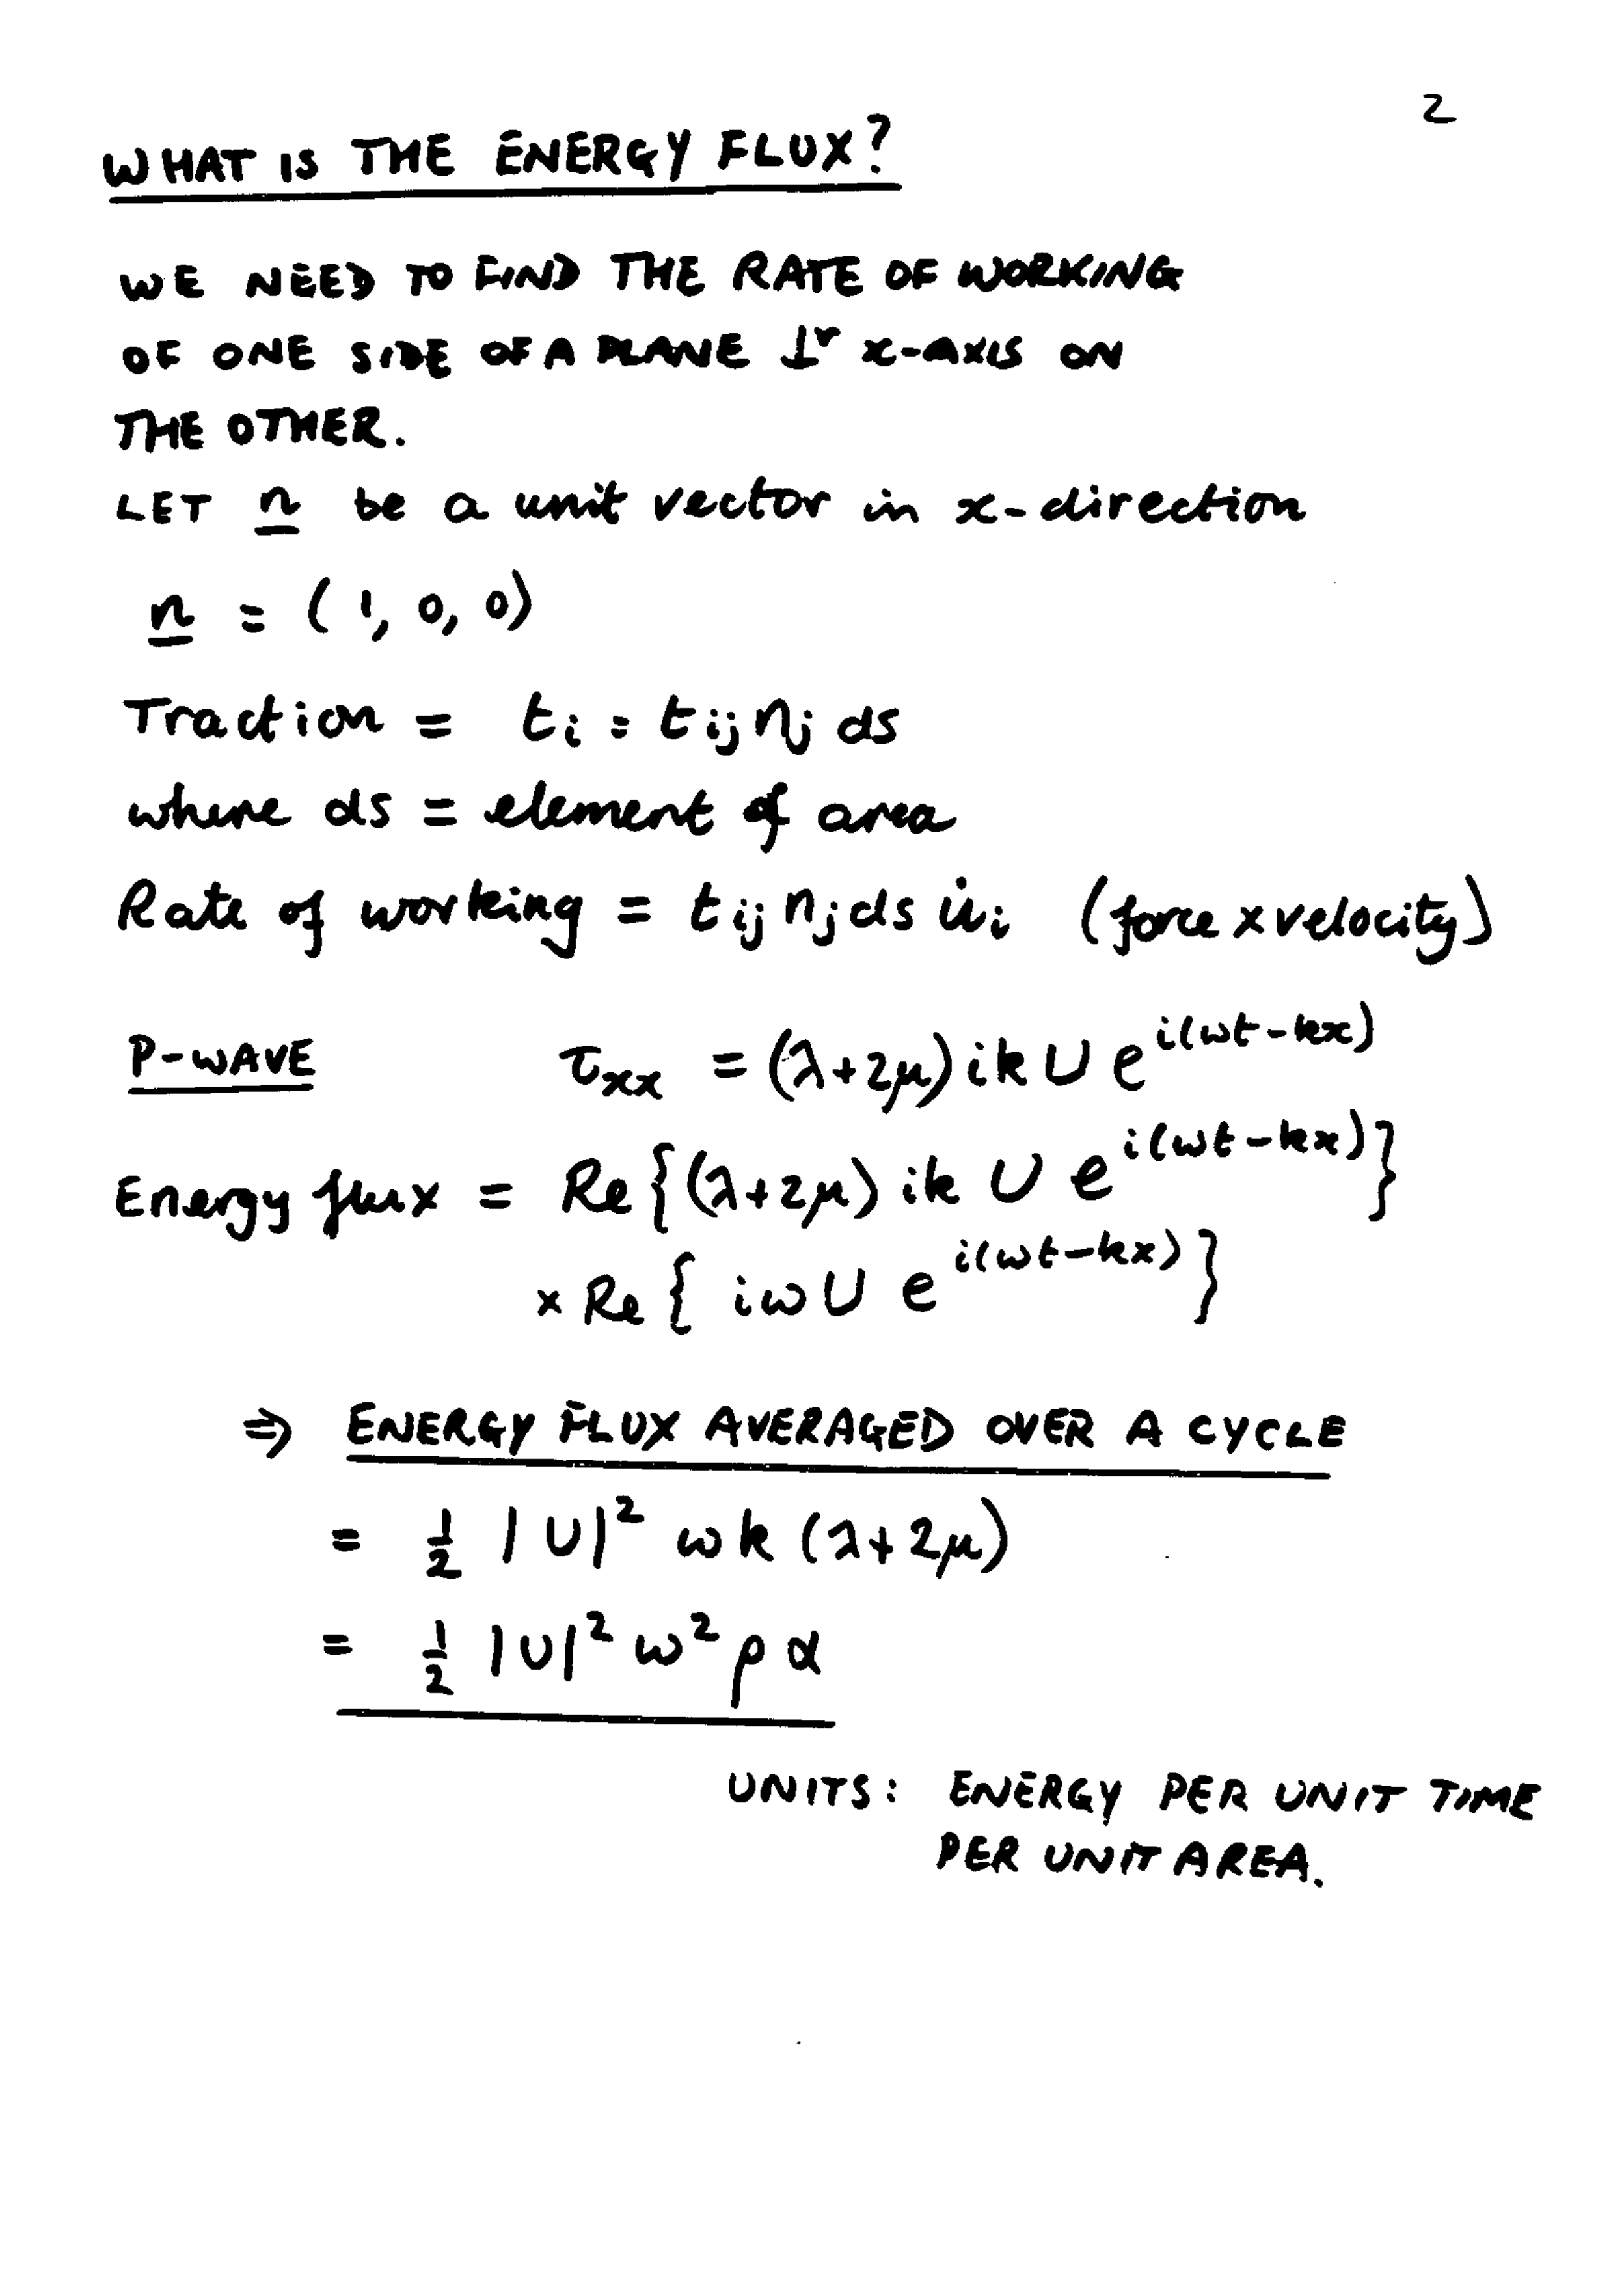 2
WHAT IS THE ENERGY FLUX?
WE NEED TO FIND THE RATE OF WORKING
OF ONE SIDE OF A PLANE ⊥r x-AXIS ON
THE OTHER.
LET n be a unit vector in x-direction
n = (1, 0, 0)
Traction = ti = tij nj ds
where ds = element of area
Rate of working = tij nj ds u̇i (force x velocity)
P-WAVE τxx = (λ+2μ) ik U e^i(ωt-kx)
Energy flux = Re{(λ+2μ) ik U e^i(ωt-kx)}
x Re{ iω U e^i(ωt-kx)}
⇒ ENERGY FLUX AVERAGED OVER A CYCLE
= 1/2 |U|² ωk (λ+2μ)
= 1/2 |U|² ω² ρ α
UNITS: ENERGY PER UNIT TIME
PER UNIT AREA.